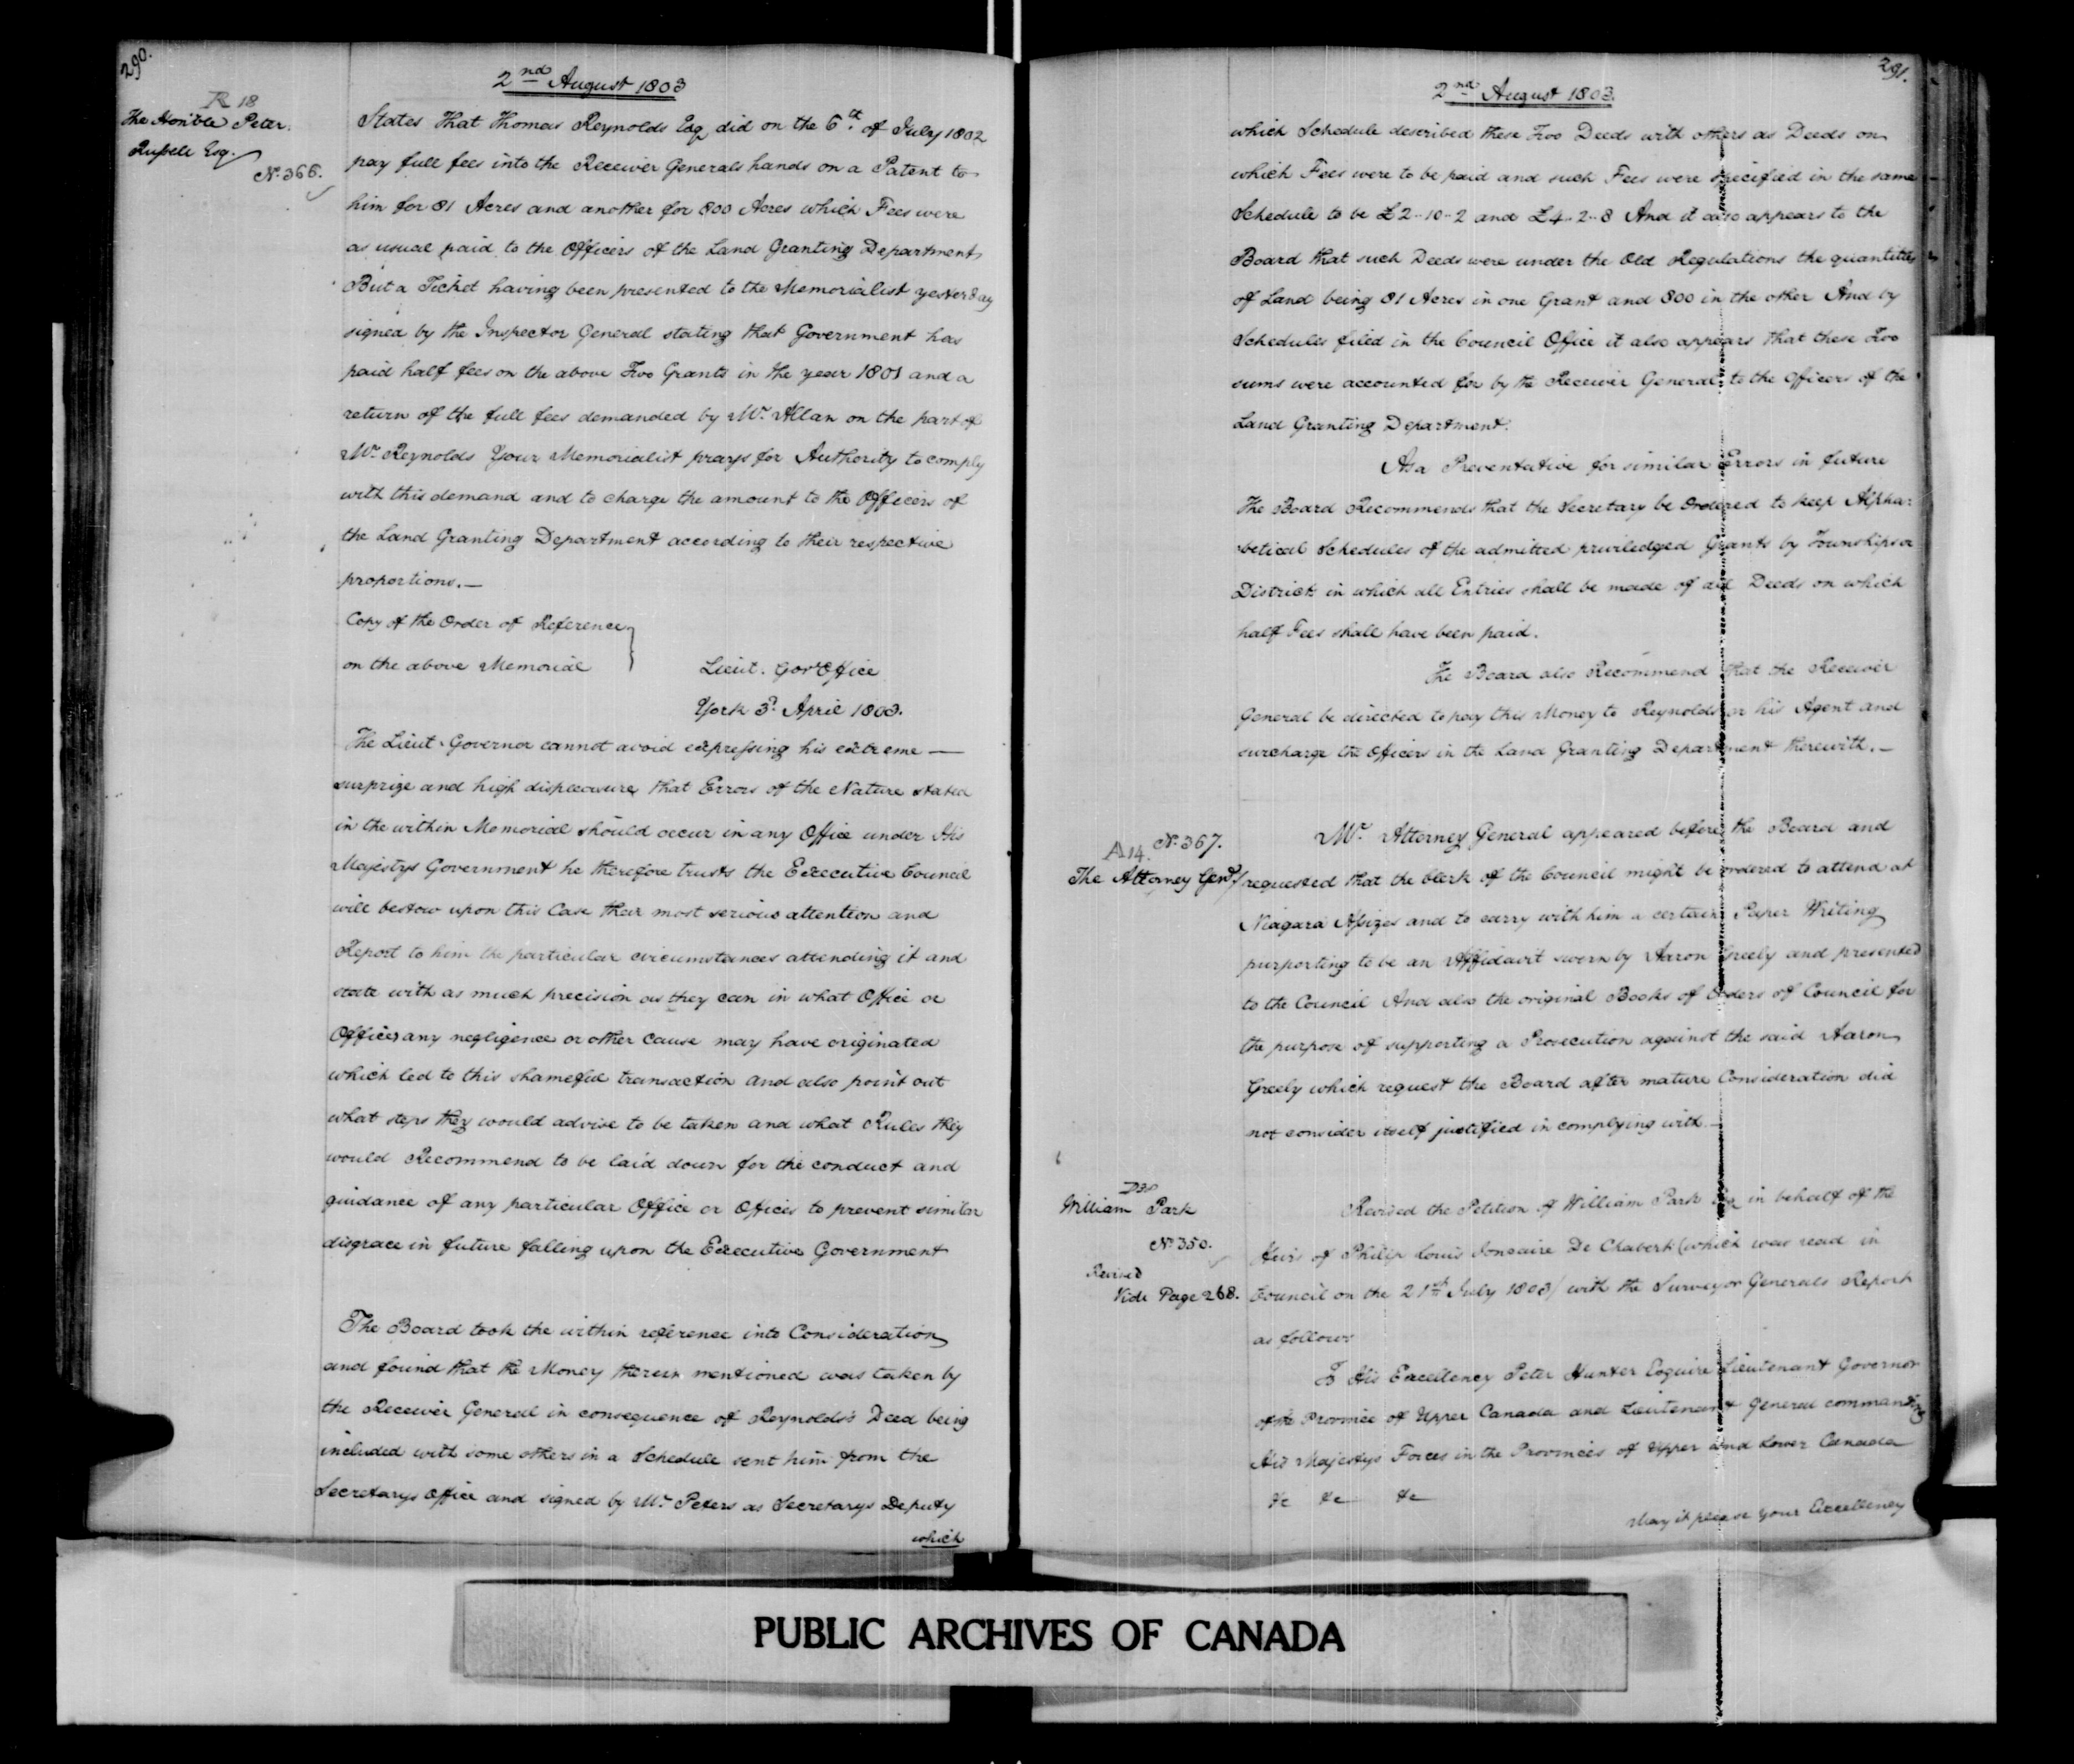 290.
2nd August 1803
R 18
The Honble Peter
Russell Esq.
No. 366.
States That Thomas Reynolds Esq did on the 6th of July 1802
pay full fees into the Receiver Generals hands on a Patent to
him for 81 Acres and another for 800 Acres which Fees were
as usual paid to the Officers of the Land Granting Department
But a Ticket having been presented to the Memorialist yesterday
signed by the Inspector General stating that Government has
paid half fees on the above Two Grants in the year 1801 and a
return of the full fees demanded by Mr. Allan on the part of
Mr. Reynolds Your Memorialist prays for Authority to comply
with this demand and to charge the amount to the Officers of
the Land Granting Department according to their respective
proportions.—
Copy of the Order of Reference
on the above Memorial
Lieut. Govr Office
York 3d. April 1803.
The Lieut. Governor cannot avoid expressing his extreme —
surprize and high displeasure that Errors of the Nature stated
in the within Memorial should occur in any Office under His
Majestys Government he therefore trusts the Executive Council
will bestow upon this Case their most serious attention and
Report to him the particular circumstances attending it and
state with as much precision as they can in what Office or
Offices any negligence or other cause may have originated
which led to this shameful transaction and also point out
what steps they would advise to be taken and what Rules they
would Recommend to be laid down for the conduct and
guidance of any particular Office or Offices to prevent similar
disgrace in future falling upon the Executive Government
The Board took the within reference into Consideration
and found that the Money therein mentioned was taken by
the Receiver General in consequence of Reynolds's Deed being
included with some others in a Schedule sent him from the
Secretarys Office and signed by Mr. Peters as Secretarys Deputy
which
291.
2nd August 1803.
which Schedule described these Two Deeds with others as Deeds on
which Fees were to be paid and such Fees were specified in the same
Schedule to be £2-10-2 and £4-2-8 And it also appears to the
Board that such Deeds were under the Old Regulations the quantities
of Land being 81 Acres in one Grant and 800 in the other And by
Schedules filed in the Council Office it also appears that these Two
sums were accounted for by the Receiver General to the Officers of the
Land Granting Department.
As a Preventative for similar Errors in future
The Board Recommends that the Secretary be Ordered to keep Alpha:
:betical Schedules of the admitted priviledged Grants by Townships or
District in which all Entries shall be made of all Deeds on which
half Fees shall have been paid.
The Board also Recommend that the Receiver
General be directed to pay this Money to Reynolds or his Agent and
surcharge the Officers in the Land Granting Department therewith.—
A 14. No. 367.
The Attorney Genl
Mr. Attorney General appeared before the Board and
requested that the Clerk of the Council might be ordered to attend at
Niagara Assizes and to carry with him a certain Paper Writing
purporting to be an Affidavit sworn by Aaron Greely and presented
to the Council And also the original Books of Orders of Council for
the purpose of supporting a Prosecution against the said Aaron
Greely which request the Board after mature Consideration did
not consider itself justified in complying with.—
William Park
No. 350.
Revised
Vide Page 268.
Revised the Petition of William Park Esq in behalf of the
Heirs of Philip Louis Joncaire De Chabert (which was read in
Council on the 21st July 1803) with the Surveyor Generals Report
as follows
To His Excellency Peter Hunter Esquire Lieutenant Governor
of the Province of Upper Canada and Lieutenant General commanding
His Majestys Forces in the Provinces of Upper and Lower Canada
&c &c &c
May it please your Excellency
PUBLIC ARCHIVES OF CANADA